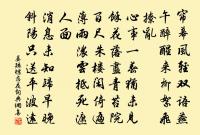 簾幕風輕雙語燕
午醉醒來柳絮飛
撩亂
心事一春猶未見
餘花落盡青苔院
百尺朱樓閒倚遍
薄雨濃雲抵死遮
人面
消息未知歸早晚
斜陽只送平波遠